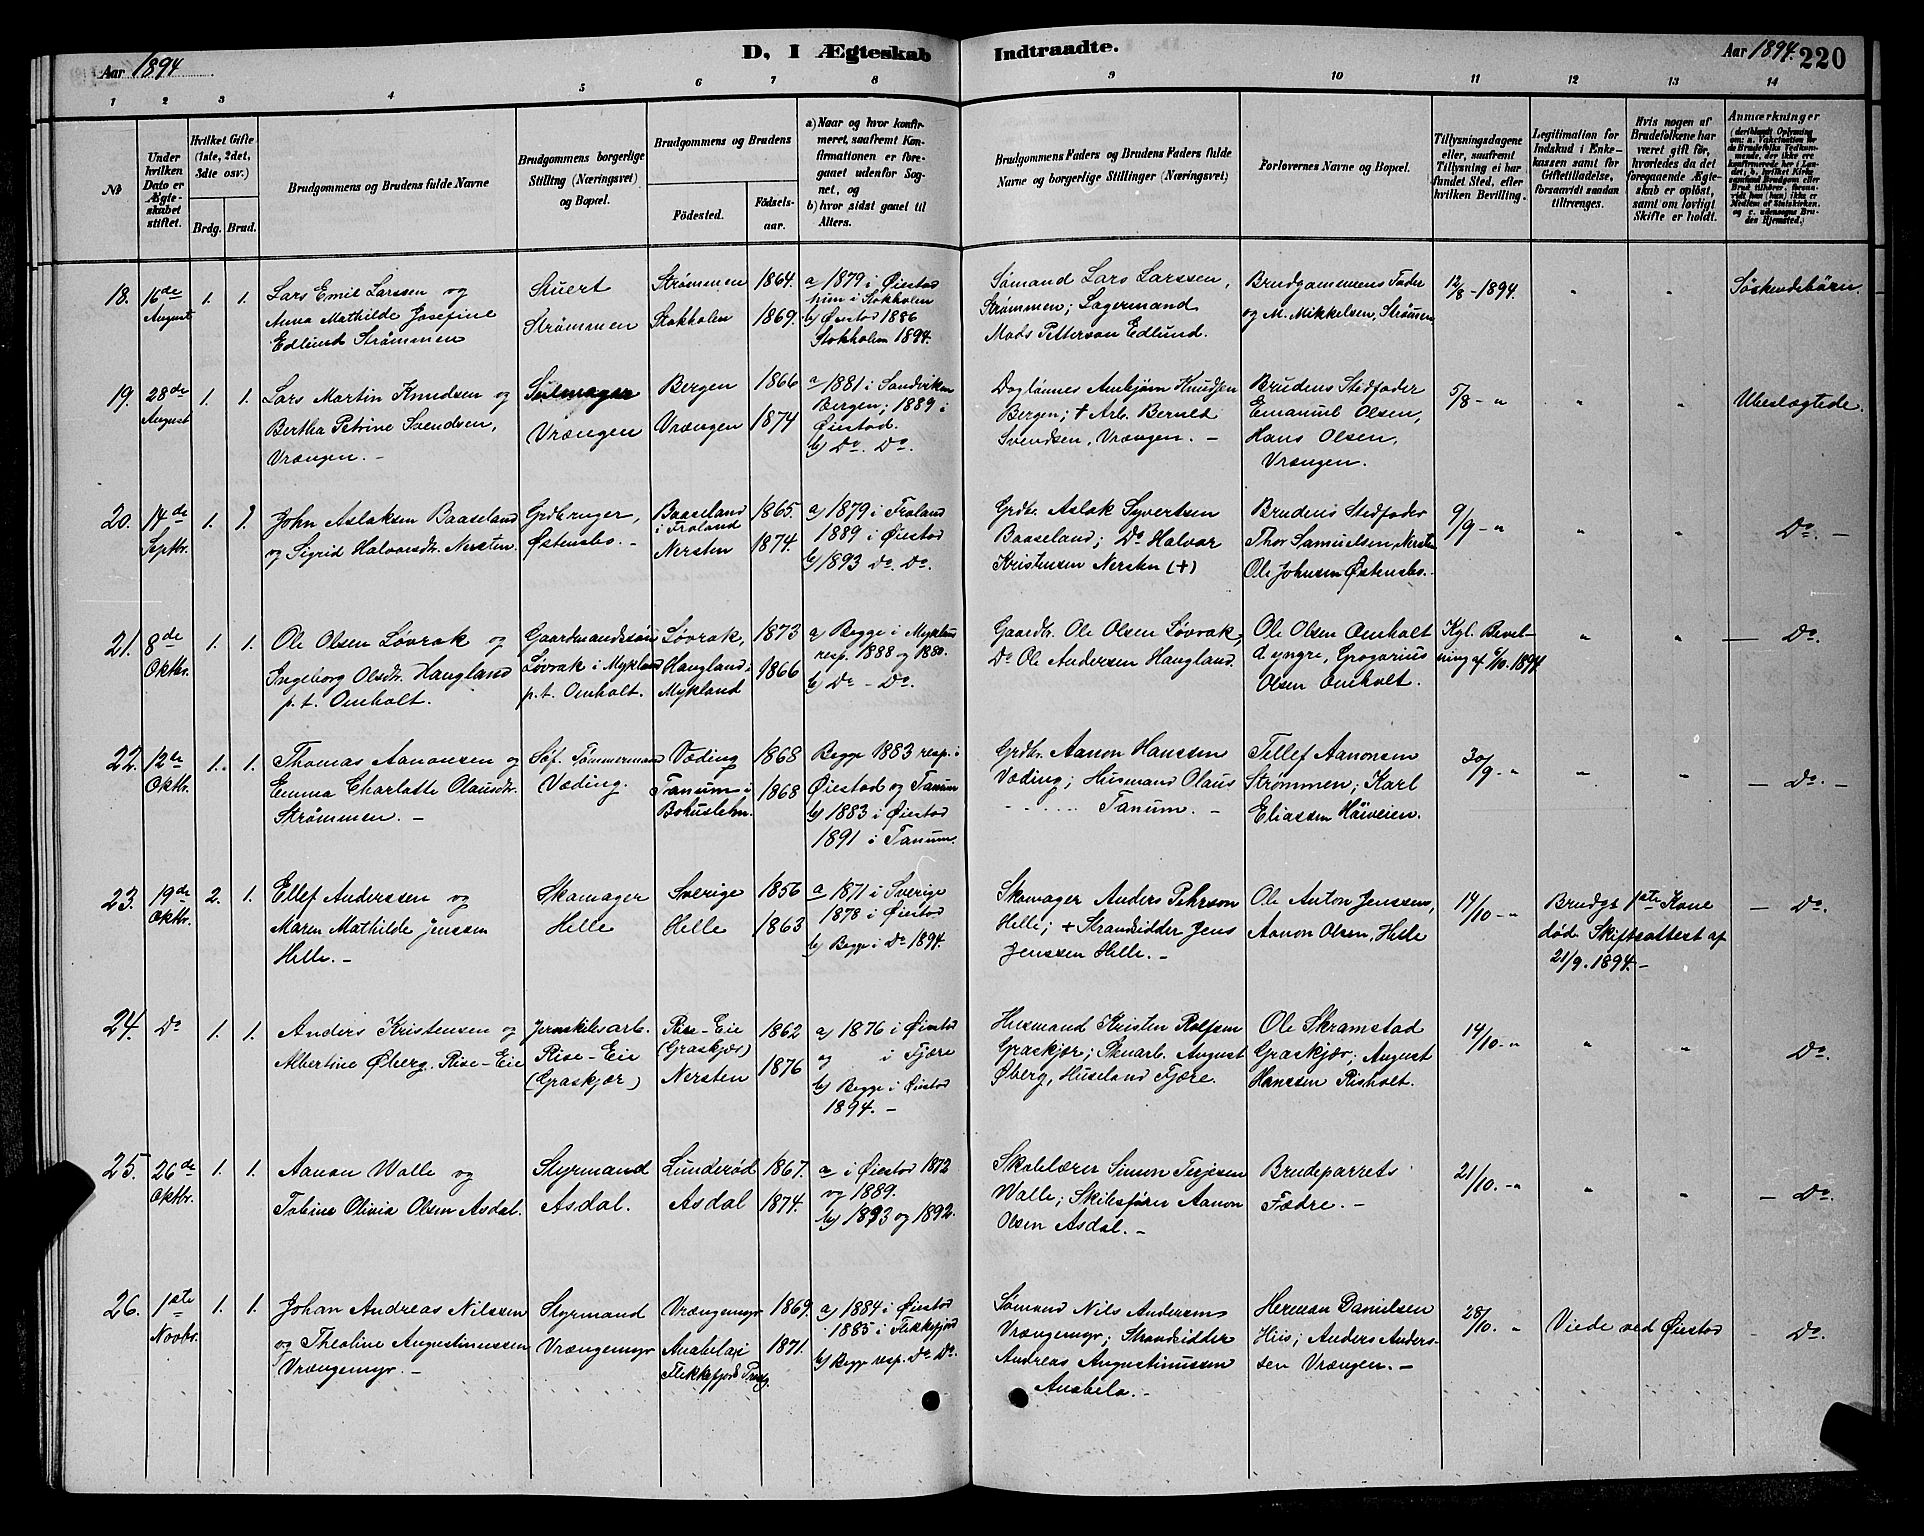 Aar 1894
D, I Ægteskab Indtraadte.
Aar 1894. 220
1 2 3 4 5 6 7 8 9 10 11 12 13 14
№
Under hvilken Dato er Ægteskabet stiftet.
Hvilket Gifte (1ste, 2det, 3die osv.)
Brdg. Brud.
Brudgommens og Brudens fulde Navne
Brudgommens borgerlige Stilling (Næringsvei) og Bopæl.
Brudgommens og Brudens
Fødested.
Fødselsaar.
a) Naar og hvor konfirmeret, saafremt Konfirmationen er foregaaet udenfor Sognet, og
b) hvor sidst gaaet til Alters.
Brudgommens Faders og Brudens Faders fulde Navne og borgerlige Stillinger (Næringsvei)
Forlovernes Navne og Bopæl.
Tillysningsdagene eller, saafremt Tillysning ei har fundet Sted, efter hvilken Bevilling.
Legitimation for Indskud i Enkekassen samt for Giftetilladelse, forsaavidt saadan tiltrænges.
Hvis nogen af Brudefolkene har været gift før, hvorledes da det foregaaende Ægteskab er opløst, samt om lovligt Skifte er holdt.
Anmærkninger
18. 16de August 1. 1.
Lars Emil Larssen og
Anna Mathilde Josefine
Edlund Strømmen
Stuert
Strømmen
Strømmen 1864.
Stokholm 1869.
a 1879 i Øiestad
hun i Stokholm
b) Øiestad 1886
Stokholm 1894.
Sømand Lars Larssen,
Strømmen; Lagermand
Mads Petterson Edlund.
Brudgommens Fader
og M. Mikkelsen, Strømmen
12/8 - 1894. " "
Søskendebörn.
19. 28de August 1. 1.
Lars Martin Knudsen og
Bertha Petrine Svendsen,
Vrængen. -
Seilmager
Vrængen
Bergen 1866
Vrængen 1874
a) 1881 i Sandviken
Bergen; 1889 i
Øiestad.
b) Do. Do.
Daglönnes Anbjørn Knudsen
Bergen; + Arb. Bernld
Svendsen, Vrængen. -
Brudens Stedfader
Emanuel Olsen,
Hans Olsen,
Vrængen.
5/8 - " " "
Ubeslægtede.
20. 14de Septbr. 1. 1.
John Aslaksen Baaseland
og Sigrid Halvorsdtr. Nersten.
Grdbruger,
Østensbo. -
Baaseland i Froland 1865.
Nersten 1874.
a) 1879 i Froland
1889 i Øiestad
b) 1893 Do. Do.
Grdbr. Aslak Syvertsen
Baaseland; Do Halvor
Kristensen Nersten (+)
Brudens Stedfader
Thor Samuelsen, Nersten
Ole Johnsen Østensbo.
9/9 - " " "
Do. -
21. 8de Oktbr. 1. 1.
Ole Olsen Løvrak og
Ingeborg Olsdtr. Haugland
p.t. Omholt.
Gaardmandssøn
Løvrak i Mykland
p.t. Omholt.
Løvrak, 1873
Haugland i Mykland 1866
a) Begge i Mykland
resp. 1888 og 1880.
b) Do - Do.
Gaardbr. Ole Olsen Løvrak,
Do Ole Andersen Haugland.
Ole Olsen Omholt
d yngre, Grogarius
Olsen Omholt.
Kgl. Bevilning af 6/10. 1894
" " - Do.
22. 12te Oktbr. 1. 1.
Thomas Aanonsen og
Emma Charlotte Olausdtr.
Strømmen. -
Søf. Tømmermand
Væding.
Væding 1868
Tanum i Bohuslehn. 1868
Begge 1883 resp. i
Øiestad og Tanum
b) 1883 i Øiestad
1891 i Tanum.
Grdbr. Aanon Hanssen
Væding; Husmand Olaus
- ..... Tanum. -
Tellef Aanonsen
Strømmen; Karl
Eliassen Håiveien.
30/9 - " " "
- Do -
23. 19de Oktbr. 2. 1.
Ellef Anderssen og
Maren Mathilde Jenssen
Helle. -
Skomager
Helle
Sverige 1856
Helle 1863
a 1871 i Sverige
1878 i Øiestad
b) Begge i Do 1894.
Skomager Anders Pehrson
Helle; + Strandsidder Jens
Jenssen Helle. -
Ole Anton Jenssen,
Aanon Olsen, Helle
14/10 - "
Brudgs 1ste Kone
død. Skifteattest af
21/9. 1894. -
- Do.
24. Do 1. 1.
Anders Kristensen og
Albertine Øberg. Rise-Eie
Jernskibsarb.
Rise-Eie
(Graskjær)
Rise-Eie (Graskjær) 1862
Nersten 1876
a) 1876 i Øiestad
og i Fjære
b) Begge i Øiestad
1894. -
Husmand Kristen Rolfsen
Graskjær; Skuarb. August
Øberg, Huseland Fjære.
Ole Skramstad
Graskjær; August
Hanssen Risholt.
14/10 - " " "
Do.
25. 26de Oktbr. 1. 1.
Aanon Walle og
Tobine Olivia Olsen Asdal.
Styrmand
Asdal.
Lunderød 1867.
Asdal 1874.
a i Øiestad 1872
og 1889.
b) 1893 og 1892.
Skolelærer Simon Terjesen
Walle; Skibsfører Aanon
Olsen Asdal. -
Brudeparrets
Fædre. -
21/10. - " " "
- Do.
26. 1ste Novbr. 1. 1.
Johan Andreas Nilssen
og Theoline Augustinussen
Vrængemyr. -
Styrmand
Vrængemyr
Vrængemyr 1869.
Anabeløi Flekkefjords Prstg. 1871.
a) 1884 i Øiestad
1885 i Flekkefjord
b) Begge resp. Do. Do.
Sømand Nils Andersens
Vrængemyr; Strandsidder
Andreas Augustinussen
Anabelø. -
Herman Danielsen
Hiis; Anders Anderssen
Vrængen. -
28/10. "
Viede ved Øiestad
- Do.